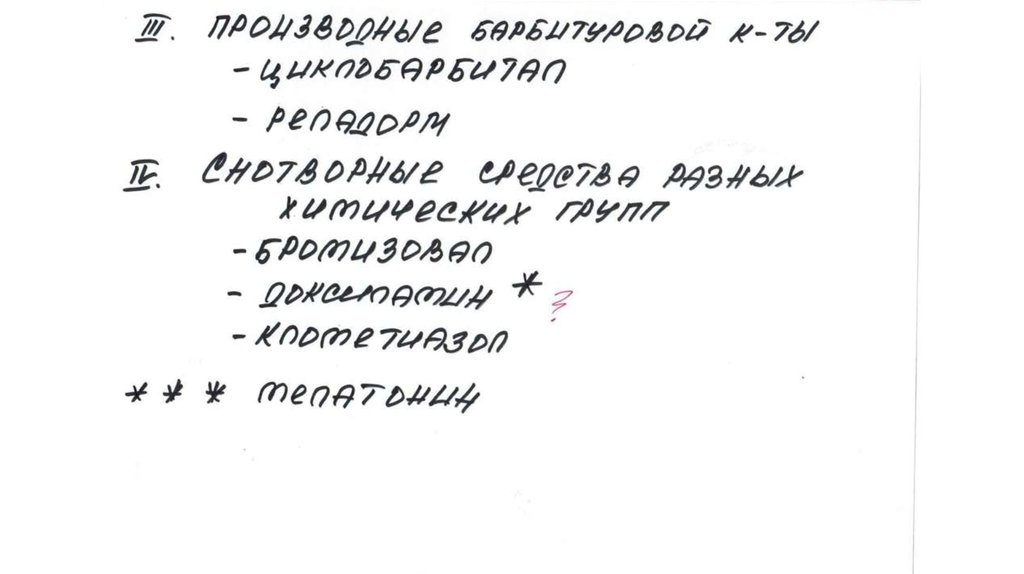 III. ПРОИЗВОДНЫЕ БАРБИТУРОВОЙ К-ТЫ
- ЦИКЛОБАРБИТАЛ
- РЕЛАДОРМ
IV. СНОТВОРНЫЕ СРЕДСТВА РАЗНЫХ
ХИМИЧЕСКИХ ГРУПП
- БРОМИЗОВАЛ
- ДОКСИЛАМИН * ?
- КЛОМЕТИАЗОЛ
* * * МЕЛАТОНИН